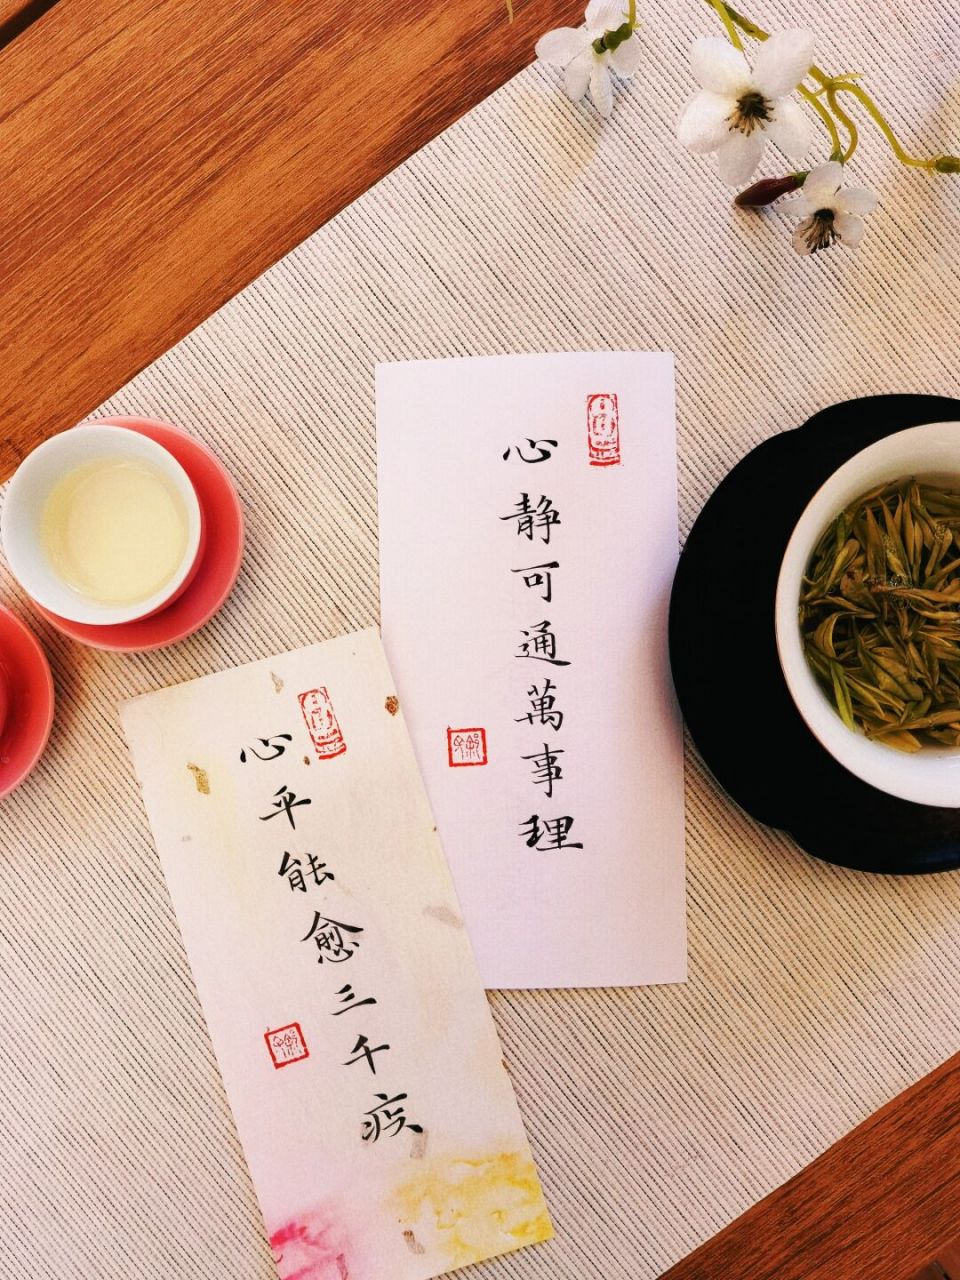 心静可通萬事理
心平能愈三千疾